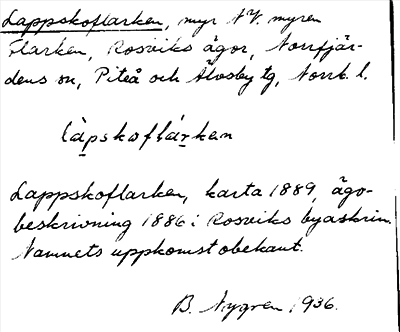 Lappskoflarken, myr NV. myren
Flarken, Rosviks ägor, Norrfjär-
dens sn, Piteå och Älvsby tg, Norrb. l.
làpskoflárken
Lappskoflarken, karta 1889, ägo-
beskrivning 1886 i Rosviks byaskrin.
Namnets uppkomst obekant.
B. Nygren, 1936.